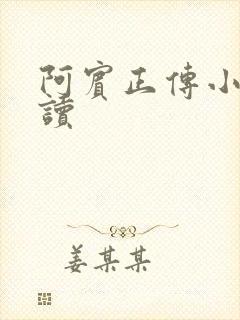 阿賓正傳小
讀
姜某某